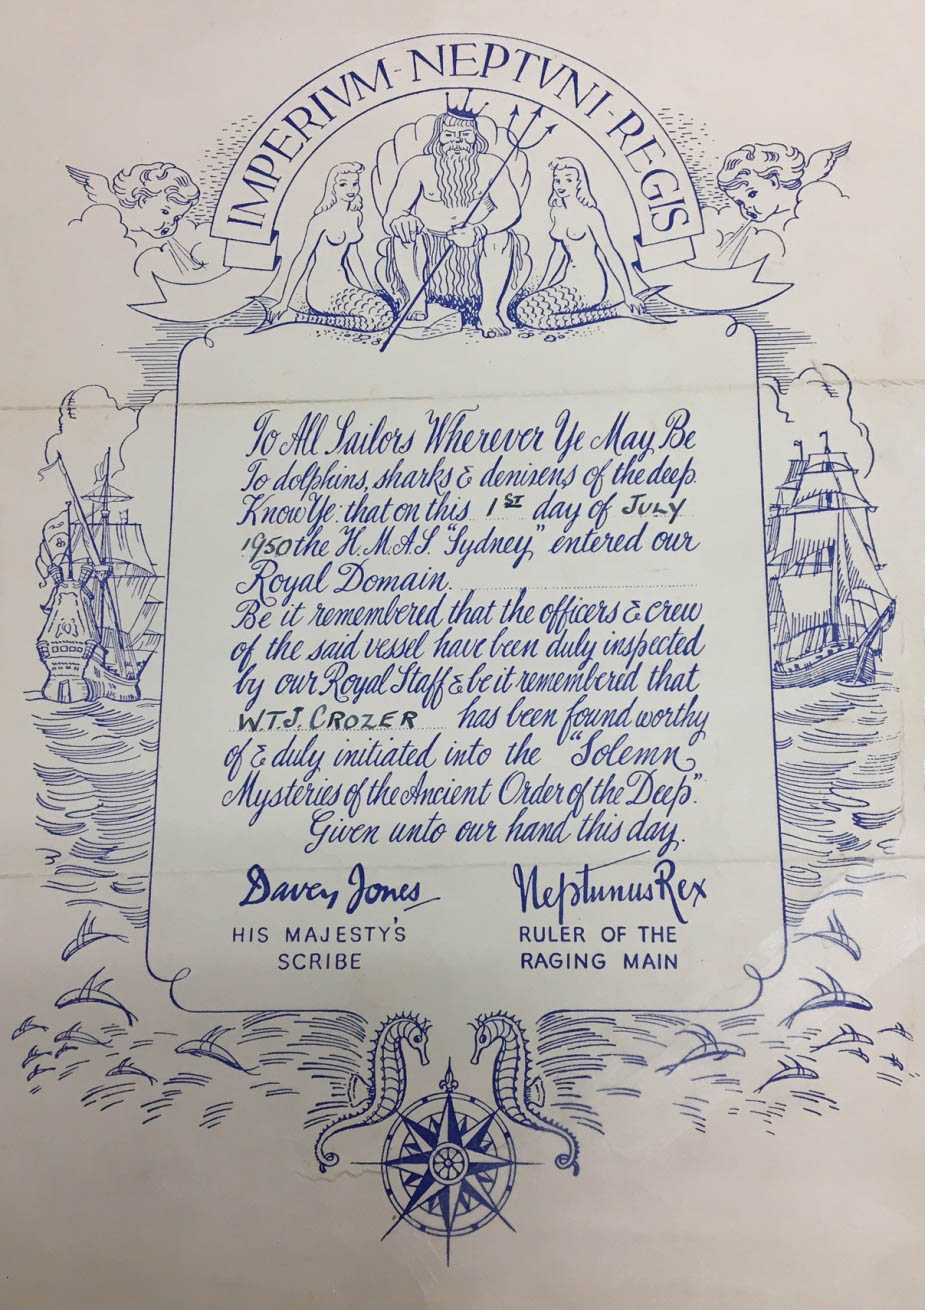 IMPERIVM-NEPTVNI-REGIS
To All Sailors Wherever Ye May Be
To dolphins, sharks & denizens of the deep.
Know Ye: that on this 1ST day of JULY
1950 the H.M.A.S. "Sydney" entered our
Royal Domain.
Be it remembered that the officers & crew
of the said vessel have been duly inspected
by our Royal Staff & be it remembered that
W.T.J. CROZER has been found worthy
of & duly initiated into the "Solemn
Mysteries of the Ancient Order of the Deep".
Given unto our hand this day.
Davey Jones Neptunus Rex
HIS MAJESTY'S RULER OF THE
SCRIBE RAGING MAIN